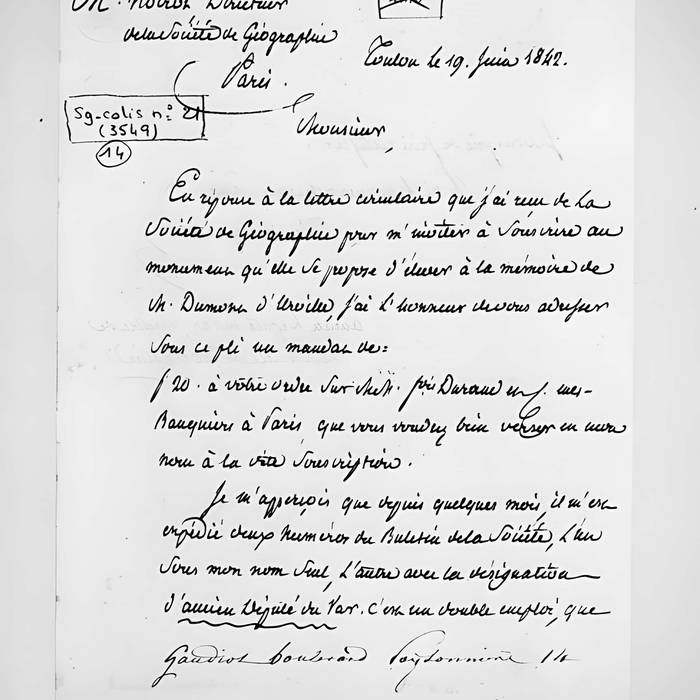 M. Noirot Directeur
de la Société de Géographie
Paris.
Toulon le 19. Juin 1842.
Sg-colis nº 21
(3549)
14
Monsieur,
En réponse à la lettre circulaire que j'ai reçu de La
Société de Géographie pour m'inviter à Souscrire au
monument qu'elle Se propose d'élever à la mémoire de
M. Dumont d'Urville, j'ai L'honneur de vous adresser
Sous ce pli un mandat de:
f 20. à votre ordre Sur MM. Durand et mes-
Banquiers à Paris que vous voudrez bien verser en mon
nom à la dite Souscription.
Je m'apperçois que depuis quelques mois, il m'est
expédié deux Numéros du Buletin de la Société, L'un
Sous mon nom Seul, L'autre avec la désignation
d'ancien Député du Var. C'est un double emploi, que
Gaudiot boulevard 14